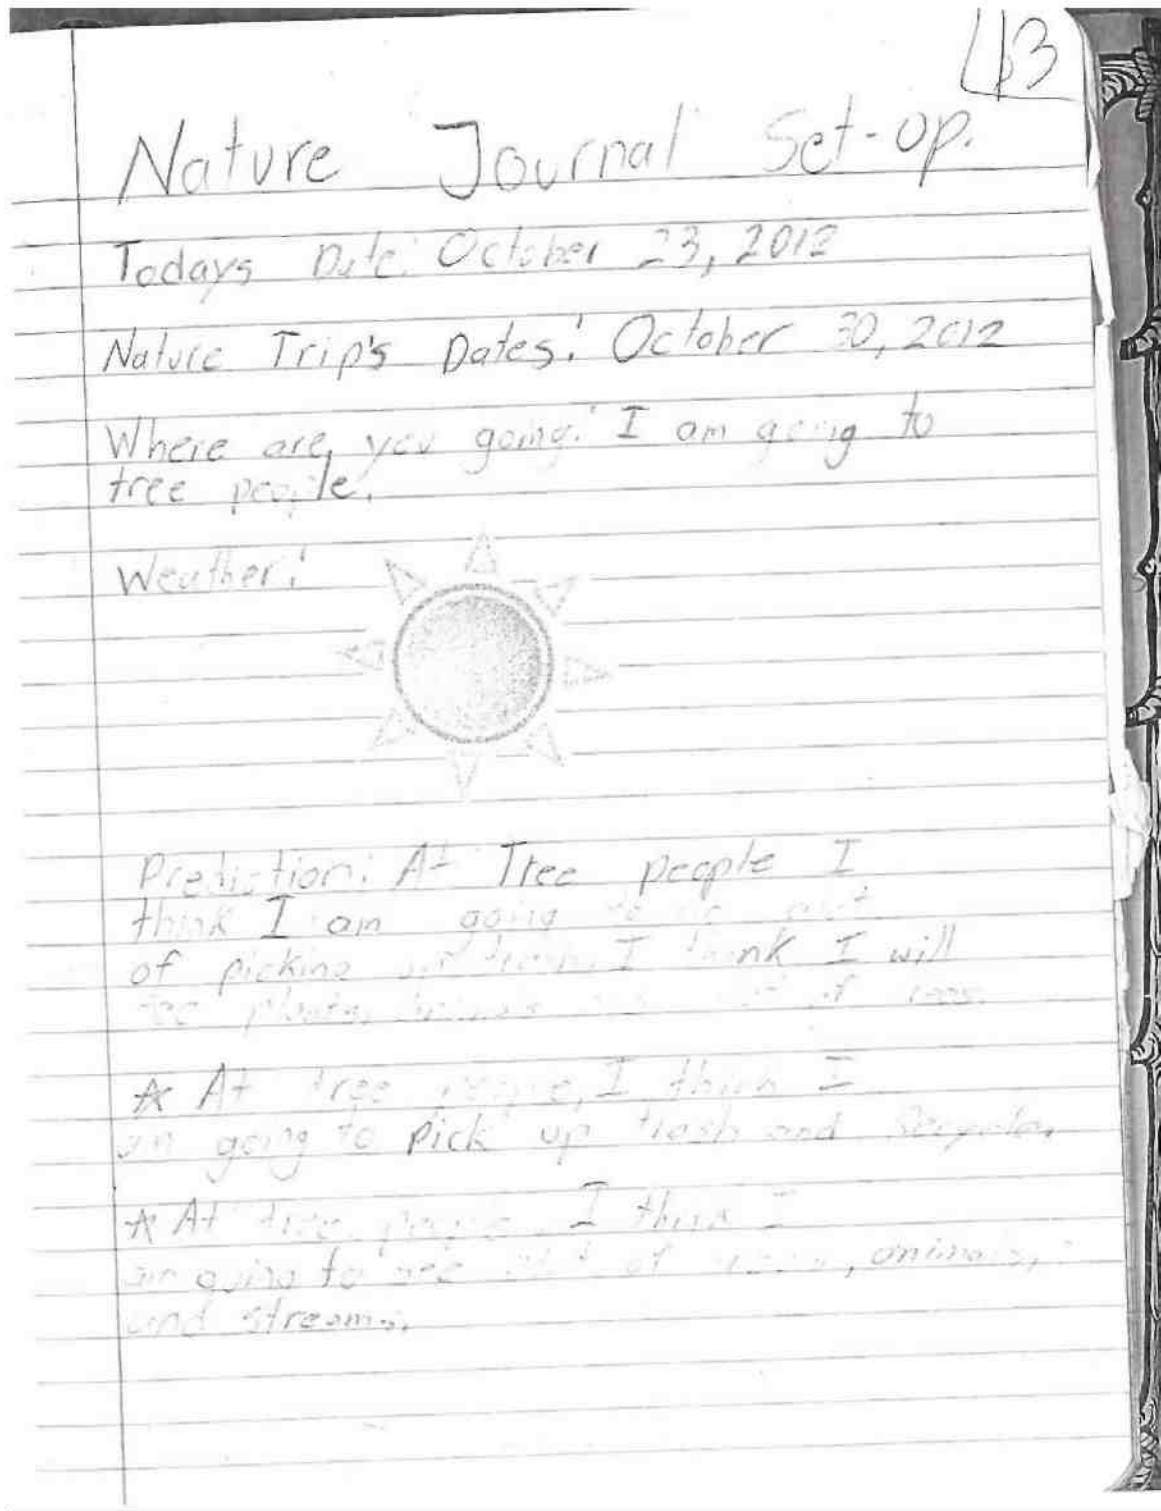 13
Nature Journal Set-up.
Todays Date: October 23, 2012
Nature Trip's Dates: October 30, 2012
Where are you going: I am going to
tree people.
Weather:
Prediction: At Tree people I
think I am going to
of picking I think I will
see plants, of
At tree people, I think I
am going to pick up trash and Recycle.
At tree people, I think I
am going to see of , animals,
and streams.